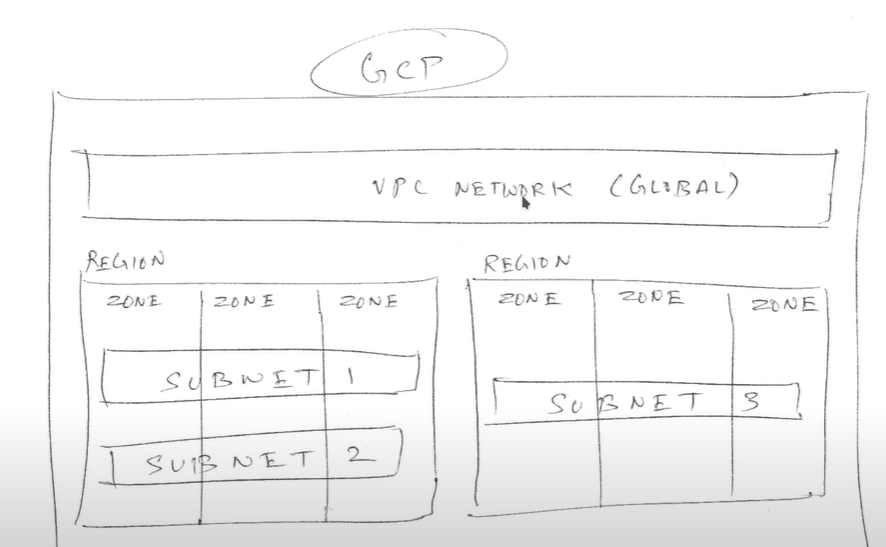 GCP
VPC NETWORK (GLOBAL)
REGION
ZONE ZONE ZONE
SUBNET 1
SUBNET 2
REGION
ZONE ZONE ZONE
SUBNET 3